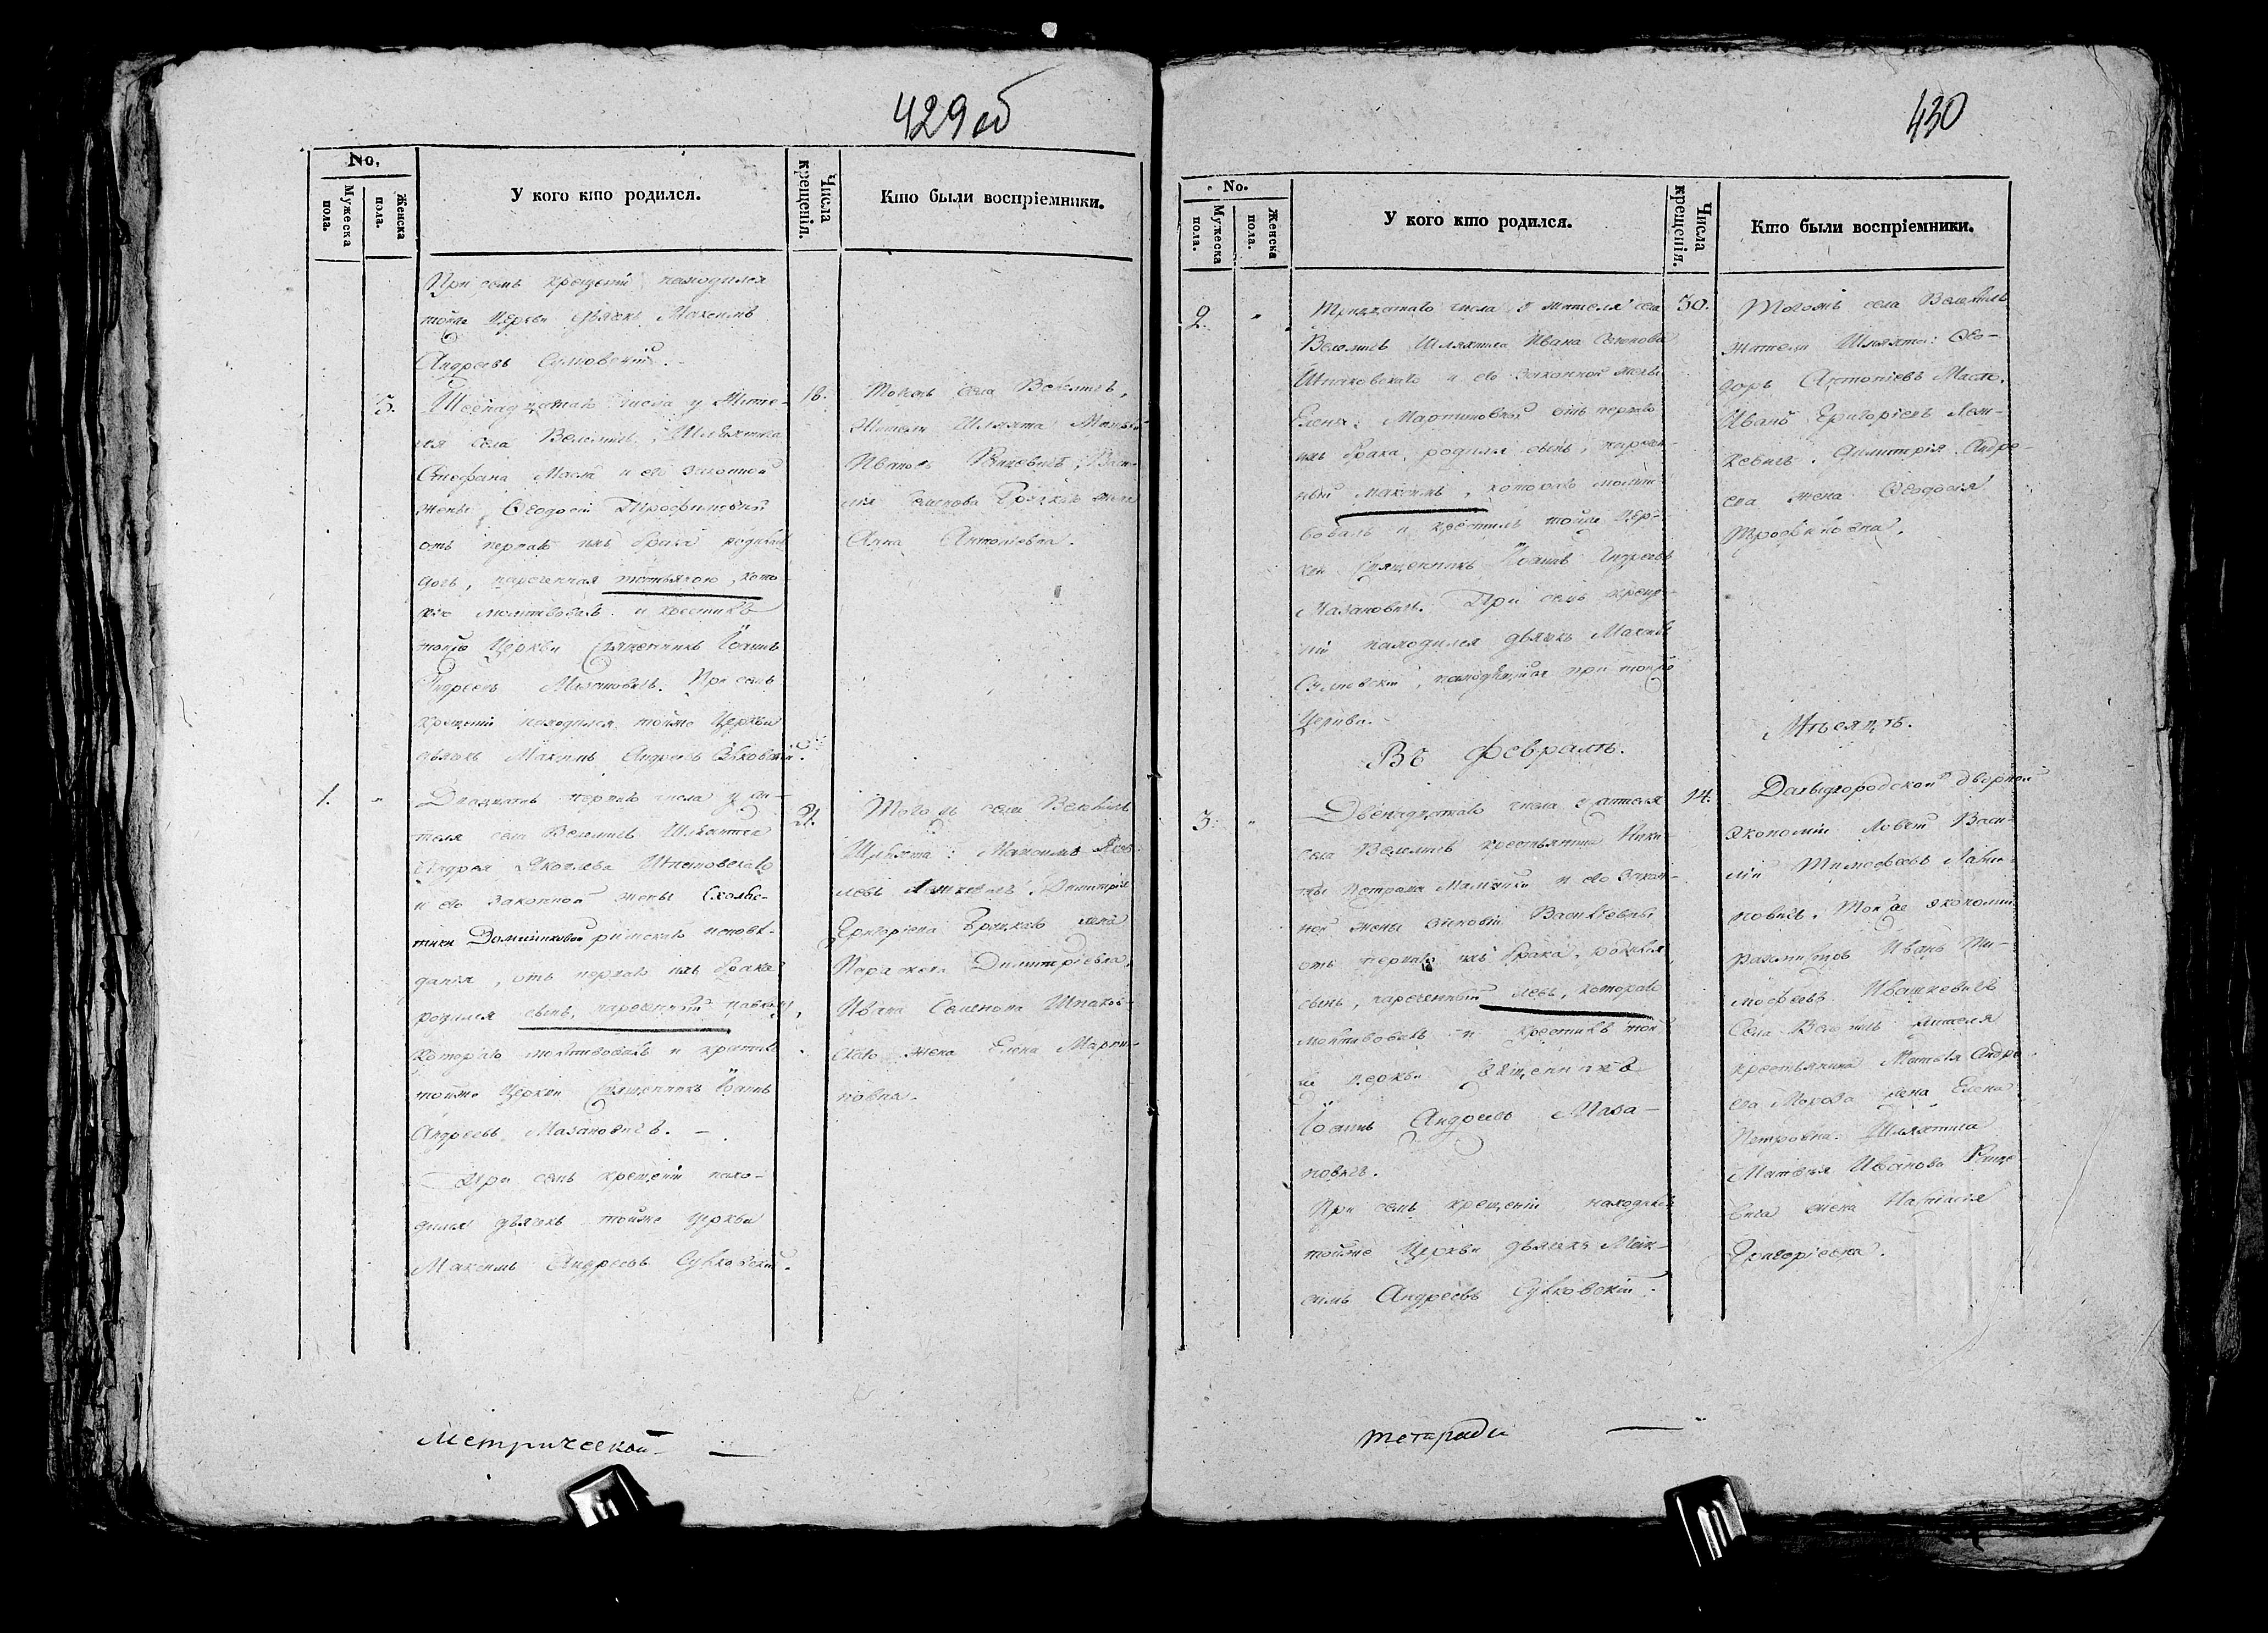 429 об
No.
Мужеска пола.
Женска пола.
У кого кто родился.
Числа крещенія.
Кто были воспріемники.
При семъ крещеніи находился
тойже Церкви дьячокъ Максимъ
Андреевъ
3.
Шеснадцатаго числа у жите-
ля села Велемичь, Шляхтича
Стефана Масла и его законной
жены Ѳеодосіи Трофимовны
отъ перваго ихъ брака родилась
дочь, нареченная Татьяною, кото-
молитвовалъ и крестилъ
тойже Церкви Священникъ Іоаннъ
Андреевъ Мазановичь. При семъ
крещеніи находился тойже Церкви
дьячокъ Максимъ Андреевъ
16.
Тогожъ села Велемичь,
Жители Шляхта
Ивановъ
Семенова жена
Анна Антоніевна.
1.
"
Двадцать перваго числа у жи-
теля села Велемичь Шляхтича
Андрея Яковлева Шпаковскаго
и его законной жены Схоляс-
тики Доминиковой римскаго исповѣ-
данія, отъ перваго ихъ брака
родился сынъ, нареченный
котораго молитвовалъ и крестилъ
тойже Церкви Священникъ Іоаннъ
Андреевъ Мазановичь. –
При семъ крещеніи нахо-
дился дьячокъ тойже Церкви
Максимъ Андреевъ
21.
Тогожъ села Велемичь
Шляхта: Максимъ Яков-
левъ Димитрія
Григоріева жена
Параскева Димитріевна,
Ивана Семенова Шпаков-
скаго жена Елена Марти-
новна.
Метрической —
430
No.
Мужеска пола.
Женска пола.
У кого кто родился.
Числа крещенія.
Кто были воспріемники.
2.
"
Тридцатаго числа у жителя села
Велемичь Шляхтича Ивана Семенова
Шпаковскаго и его законной жены
Елены Мартиновной отъ перваго
ихъ брака, родился сынъ, наречен-
ный Максимъ, котораго молит-
вовалъ и крестилъ тойже Цер-
кви Священникъ Іоаннъ Андреевъ
Мазановичь. При семъ креще-
ніи находился дьячокъ Максимъ
находящійся при тойже
Церкви.
30.
Тогожъ села Велемичь
жители Шляхта: Ѳео-
доръ Антоніевъ Масло.
Иванъ Григоріевъ
Димитрія Андре-
ева жена Ѳеодосія
Трофимовна.
Въ Февралѣ.
Мѣсяцѣ.
3.
"
Двенадцатаго числа у жителя
села Велемичь крестьянина Ники-
ты Петрова и его закон-
ной жены Зиновіи Васильевны
отъ перваго ихъ брака, родился
сынъ, нареченный Левъ, котораго
молитвовалъ и крестилъ той
же церкви Священникъ
Іоаннъ Андреевъ Маза-
новичь.
При семъ крещеніи находился
тойже Церкви дьячокъ Мак-
симъ Андреевъ
14.
Давыдгородской дворной
Экономіи Васи-
лій Тимофеевъ
тойже экономіи
Иванъ Ти-
мофеевъ Ивашкевичь
Села Велемичь жителя
крестьянина Матвѣя Андре-
ева жена Елена
Петровна. Шляхтича
Матвѣя Иванова
жена Настасія
Григоріевна.
тетради —